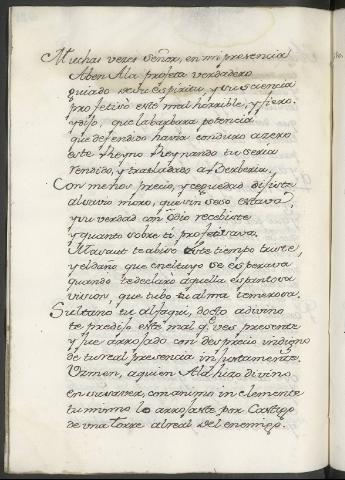 Muchas veces señor, en mi presencia
Aben Ala profeta verdadero
guiado de su espiritu, y su sciencia
profetizò este mal horrible, y fiero.
y dijo, que la barbara potencia
que defendido havia con duro azero
este Reyno Reynando tu seria
rendido, y trasladado a Berberia.
Con menos precio, y ceguedad dijiste
al savio moro, que sin seso estava,
y su verdad con òdio recebiste
y quanto sobre ti profetizava.
te abisò este tiempo triste,
y el daño que en el tuyo se esperava
quando te declarò aquella espantosa
vision, que tubo tu alma temerosa.
Sultano tu alfaqui, docto adivino
te predijo este mal q.e ves presente
y fue arrojado con desprecio indigno
de tu real presencia injustamente.
Ozmen, a quien Alà hizo divino
en su saver, con animo in clemente
tu mismo lo arrojaste por Castigo
de vna torre al real del enemigo.